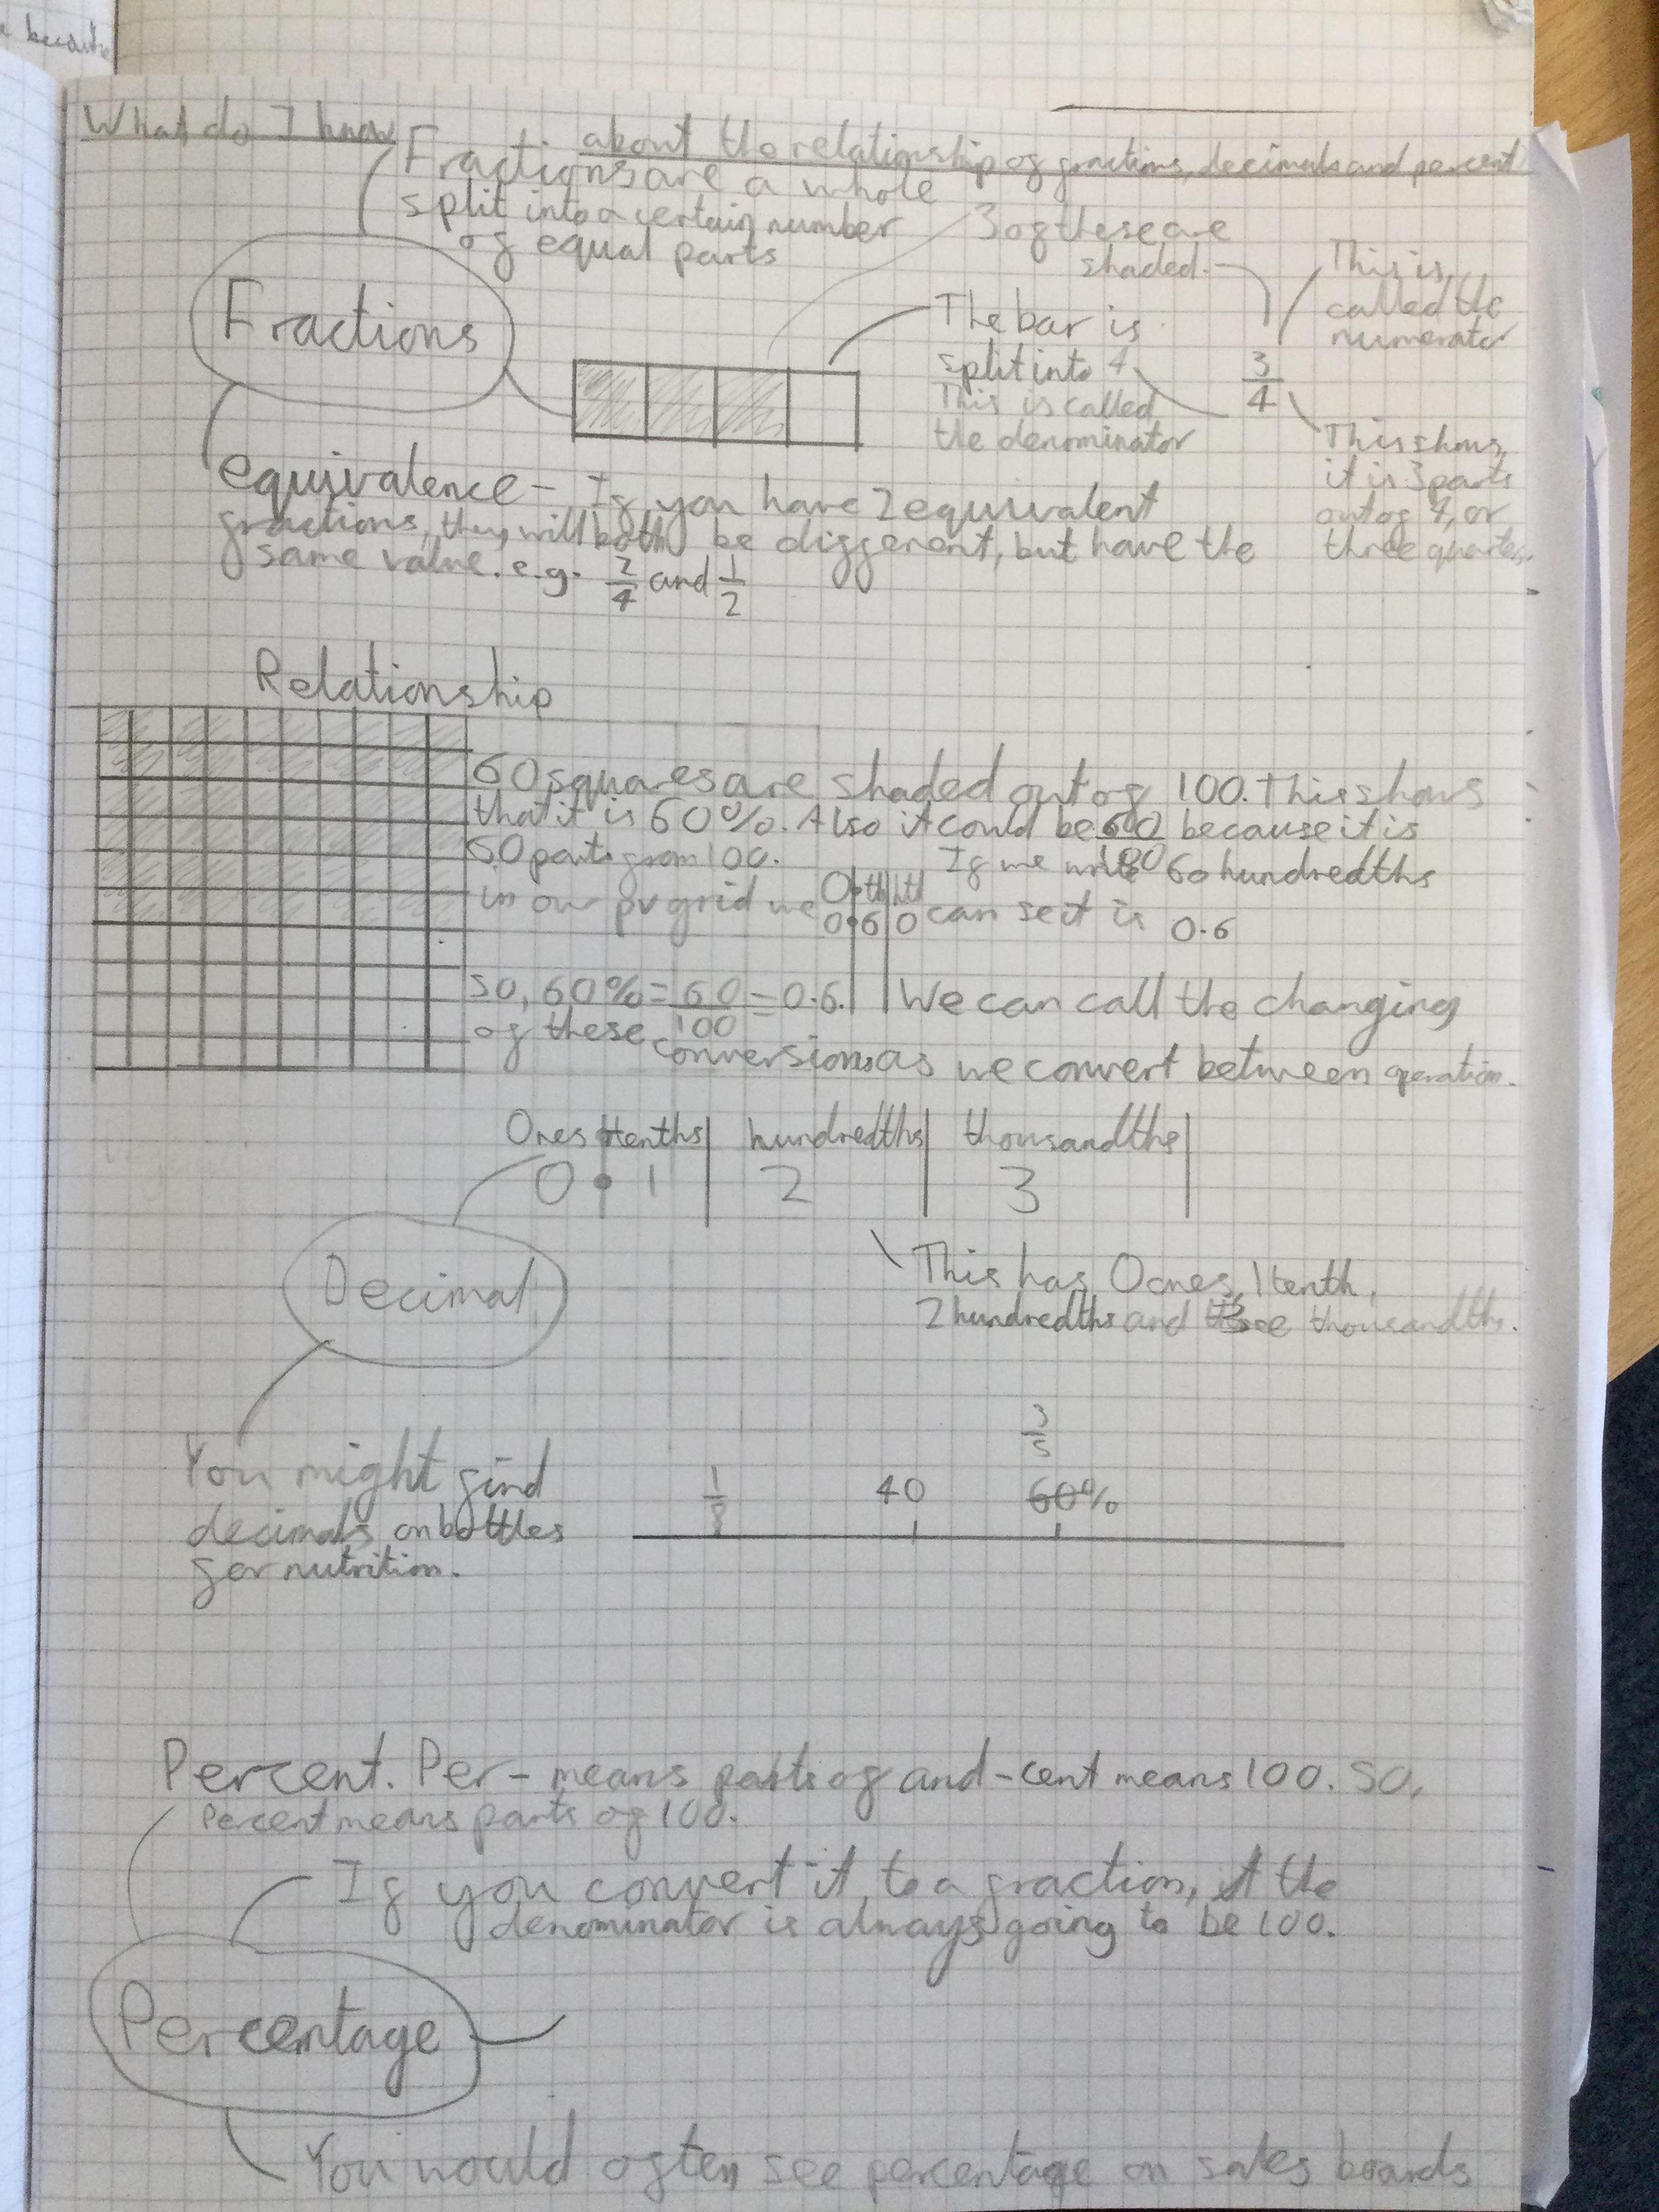 because
What do I know about the relationship of fractions, decimals and percent
Fractions are a whole
split into a certain number
of equal parts
3 of these are
shaded.
This is
called the
numerator
Fractions
The bar is
split into 4
This is called
the denominator
3
4
This shows
it is 3 parts
out of 4, or
three quarters.
equivalence - If you have 2 equivalent
fractions, they will both be different, but have the
same value. e.g. 2/4 and 1/2
Relationship
60 squares are shaded out of 100. This shows
that it is 60%. Also it could be 60/100 because it is
60 parts from 100. If we write 60 hundredths
in our pv grid we
O th hth
0.6 0
can se it is 0.6
So, 60% = 60/100 = 0.6. We can call the changing
of these conversions as we convert between operation.
Ones tenths hundredths thousandths
0 . 1 2 3
Decimal
This has 0 ones, 1 tenth,
2 hundredths and thousandths.
3
5
You might find
decimals on bottles
for nutrition.
1/8 40 60%
Percent. Per- means parts of and -cent means 100. So,
Percent means parts of 100.
If you convert it to a fraction, the
denominator is always going to be 100.
Percentage
You would often see percentage on sales boards